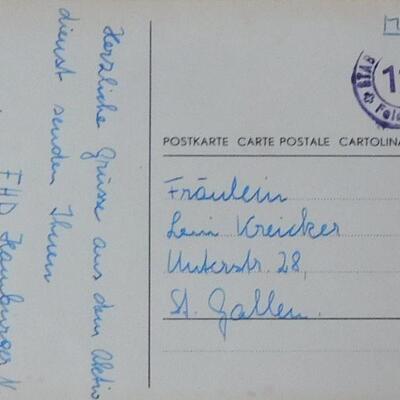 Herzliche Grüsse aus dem Aktiv
dienst senden Ihnen
FHD Hamburger
POSTKARTE CARTE POSTALE CARTOLINA
STAB
11
Feld
Fräulein
Leni Kreicker
Unterstr. 28,
St. Gallen.